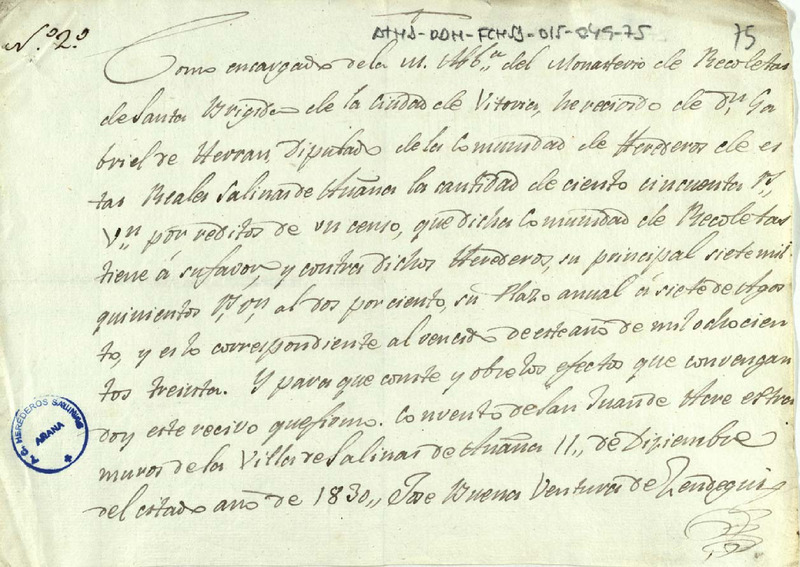 N.º 2.º
ATHJ-DDH-FCHSJ-015-049-75
75
Como encargado de la M. Abb.ª del Monasterio de Recoletas
de Santa Brigida de la ciudad de Vitoria, he recivido de D.n Ga
briel de Herran, Diputado de la Comunidad de Herederos de es
tas Reales Salinas de Añana la cantidad de ciento cincuenta r.s
V.n por reditos de un censo, que dicha Comunidad de Recoletas
tiene á su favor, y contra dichos Herederos, su principal siete mil
quinientos r.s v.n al dos por ciento, su Plazo anual á siete de Agos
to, y es lo correspondiente al vencido de este año de mil ochocien
tos treinta. Y para que conste y obre los efectos que convengan
doy este recivo que firmo. Convento de San Juan de Acre extra
muros de la Villa de Salinas de Añana 11,, de Diziembre
del citado año de 1830,, Jose Buena Ventura de
C. HEREDEROS SALINAS
AÑANA